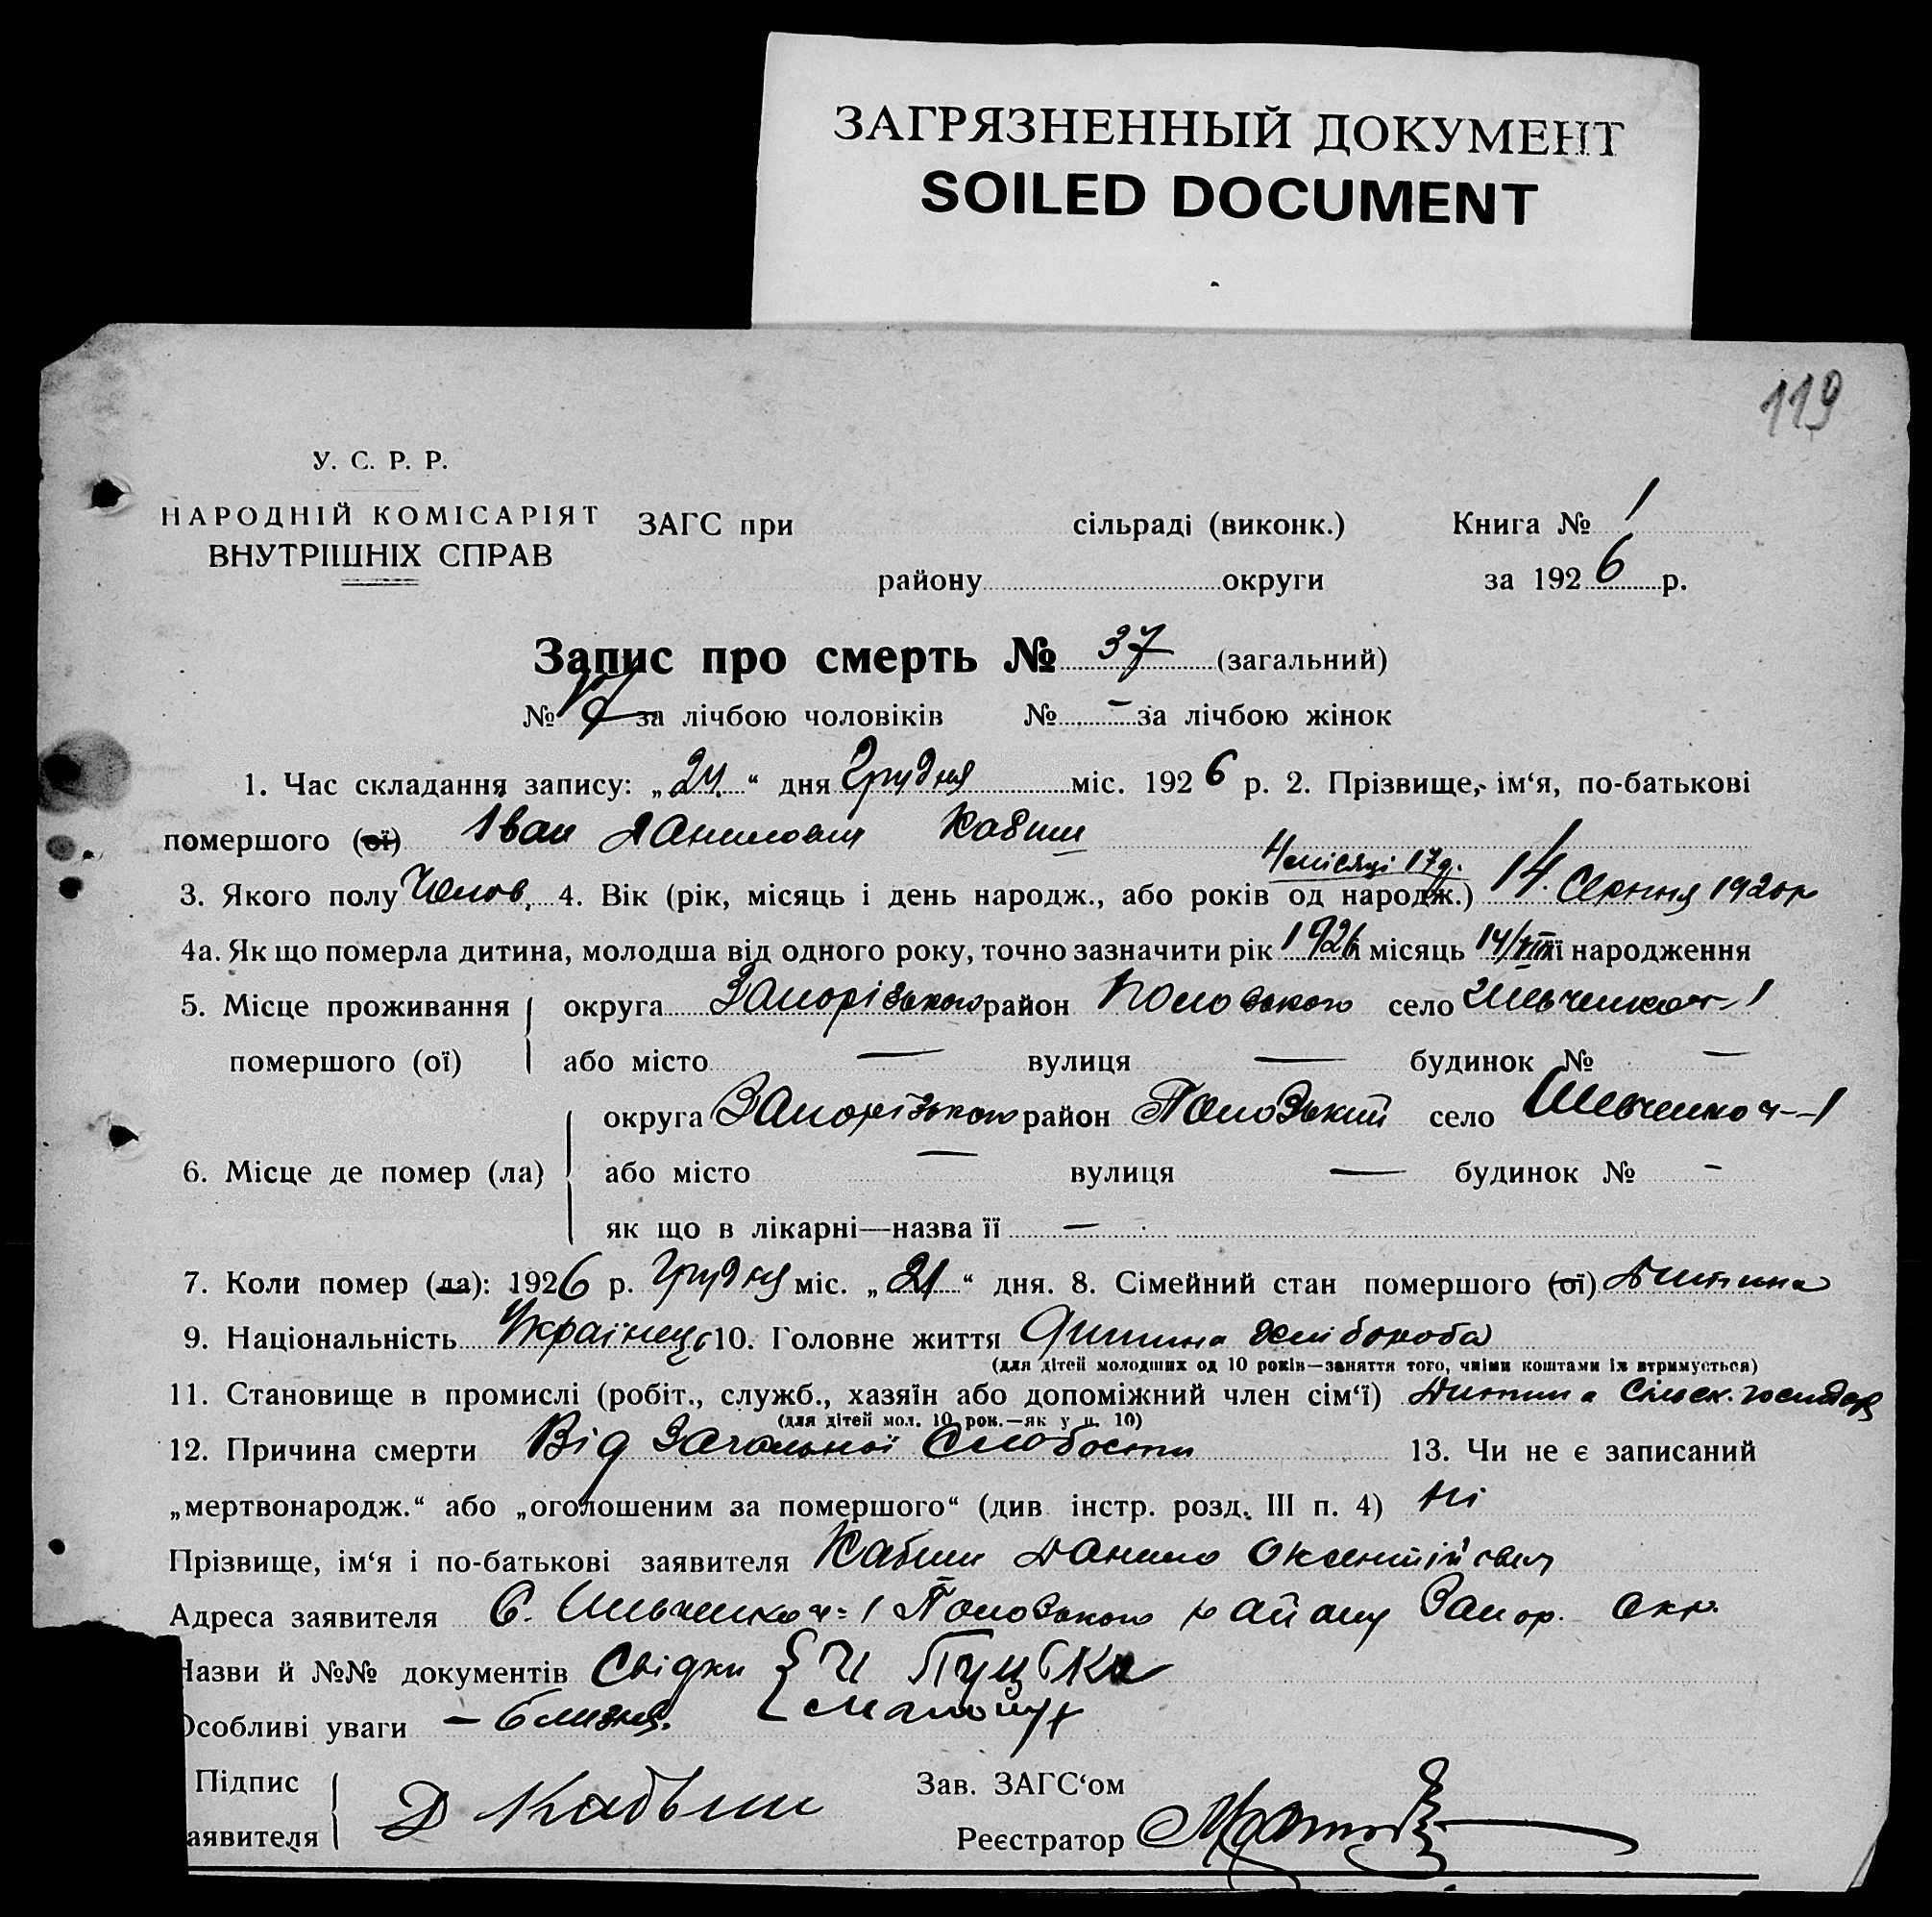 ЗАГРЯЗНЕННЫЙ ДОКУМЕНТ
SOILED DOCUMENT
119
У. С. Р. Р.
НАРОДНІЙ КОМІСАРІЯТ
ВНУТРІШНІХ СПРАВ
ЗАГС при сільраді (виконк.) Книга № 1
району округи за 1926 р.
Запис про смерть № 37 (загальний)
№ за лічбою чоловіків № – за лічбою жінок
1. Час складання запису: „24“ дня Грудня міс. 1926 р. 2. Прізвище, ім‘я, по-батькові
помершого (ої) Іван Данилович
4 місяці 17 д.
3. Якого полу Чолов. 4. Вік (рік, місяць і день народж., або років од народж.) 14. Серпня
4а. Як що померла дитина, молодша від одного року, точно зазначити рік 1926 місяць 14/VIII народження
5. Місце проживання округа Запорізького район Пологського село Шевченко ч-1
помершого (ої) або місто — вулиця — будинок № —
округа Запорізького район Пологський село Шевченко ч-1
6. Місце де помер (ла) або місто — вулиця — будинок № -
як що в лікарні—назва її —
7. Коли помер (ла): 1926 р. Грудня міс. „21“ дня. 8. Сімейний стан помершого (ої) Дитина
9. Національність Українець 10. Головне життя Дитина хлібороба
(для дітей молодших од 10 років—заняття того, чиїми коштами їх втримується)
11. Становище в промислі (робіт., служб., хазяїн або допоміжний член сім‘ї) Дитина Сільск. господар
(для дітей мол. 10 рок.—як у п. 10)
12. Причина смерти Від Загальної Слабости 13. Чи не є записаний
„мертвонародж.“ або „оголошеним за помершого“ (див. інстр. розд. III п. 4) Ні
Прізвище, ім‘я і по-батькові заявителя Кабиш Данило Оксентійович
Адреса заявителя С. Шевченко ч-1 Пологського району Запор. Окр.
Назви й №№ документів Свідки
Особливі уваги — близня.
Підпис
заявителя
Зав. ЗАГС‘ом
Реєстратор